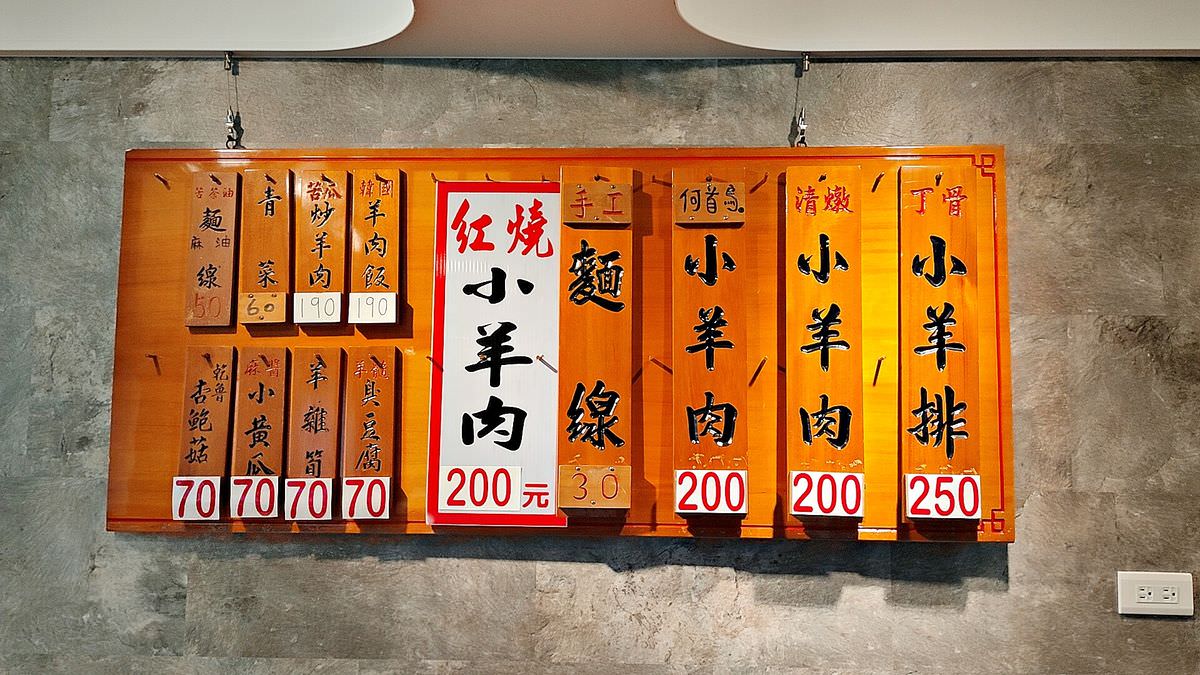 丁骨
小羊排
250
清燉
小羊肉
200
何首烏
小羊肉
200
手工
麵線
30
紅燒
小羊肉
200元
韓國
羊肉飯
190
苦瓜
炒羊肉
190
青菜
60
苦茶油
麻油
麵線
50
臭豆腐
70
羊雜
70
麻醬
小黃瓜
70
乾魯
杏鮑菇
70